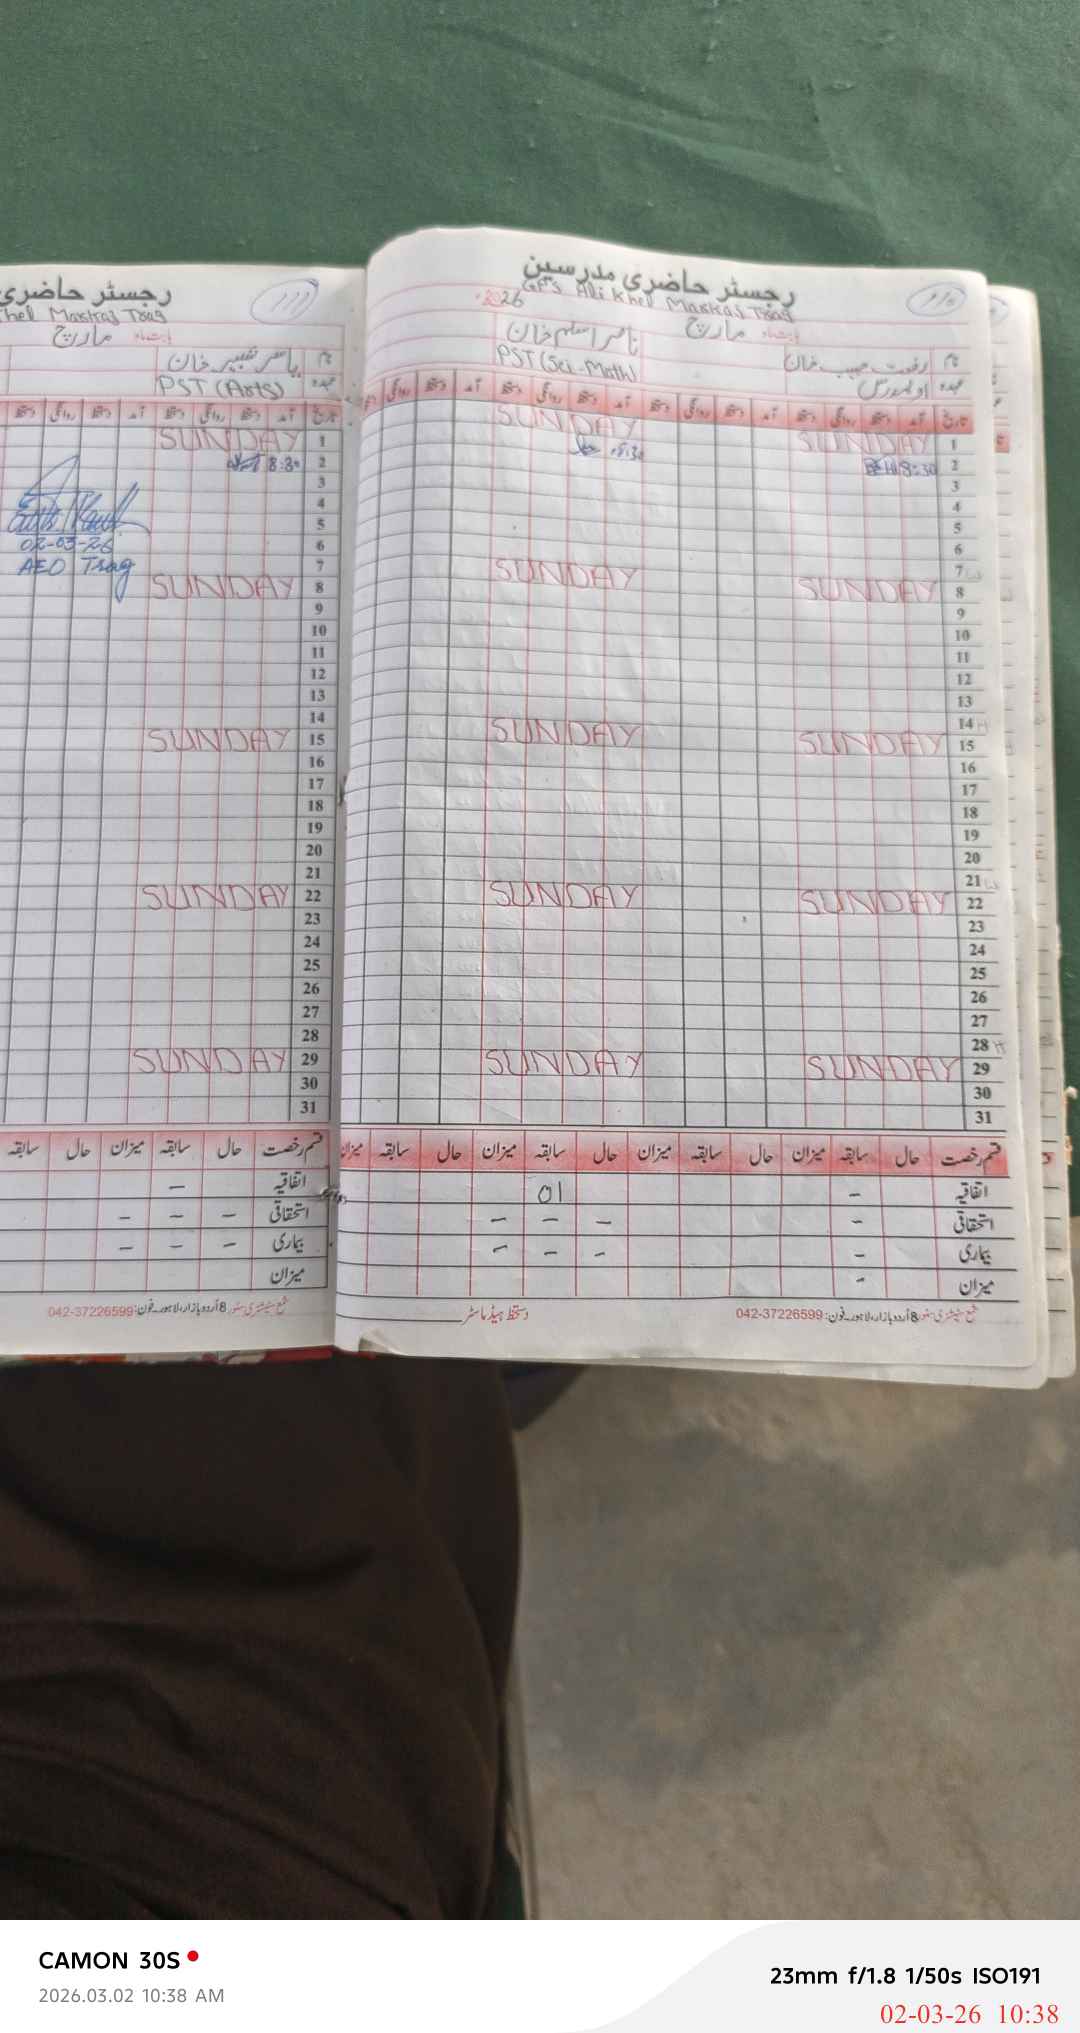 رجسٹر حاضری مدرسین
GPS Ali Khel Markaz Tsag
2026
بابت ماہ مارچ
نام رفعت حبیب خان
ناصر اسلم خان
عہدہ اول مدرس
PST (Sci-Math)
تاریخ آمد دستخط روانگی دستخط آمد دستخط روانگی دستخط آمد دستخط روانگی دستخط آمد دستخط روانگی
1 SUNDAY SUNDAY
2 8:30
3
4
5
6
7
8 SUNDAY SUNDAY
9
10
11
12
13
14
15 SUNDAY SUNDAY
16
17
18
19
20
21
22 SUNDAY SUNDAY
23
24
25
26
27
28
29 SUNDAY SUNDAY
30
31
قسم رخصت حال سابقہ میزان حال سابقہ میزان حال سابقہ میزان حال سابقہ میزان
اتفاقیہ – 01
استحقاقی – – – –
بیماری – – – –
میزان –
شمع سٹیشنری سٹور 8 اُردو بازار، لاہور۔ فون: 042-37226599
دستخط ہیڈ ماسٹر
رجسٹر حاضری
Khel Markaz Tsag
بابت ماہ مارچ
نام یاسر شبیر خان
عہدہ PST (Arts)
تاریخ آمد دستخط روانگی دستخط آمد دستخط روانگی دستخط
1 SUNDAY
2 8:30
3
4
5
6
7
8 SUNDAY
02-03-26
AEO Tsag
9
10
11
12
13
14
15 SUNDAY
16
17
18
19
20
21
22 SUNDAY
23
24
25
26
27
28
29 SUNDAY
30
31
قسم رخصت حال سابقہ میزان حال سابقہ
اتفاقیہ –
استحقاقی – – –
بیماری – – –
میزان
شمع سٹیشنری سٹور 8 اُردو بازار، لاہور۔ فون: 042-37226599
CAMON 30S
2026.03.02 10:38 AM
23mm f/1.8 1/50s ISO191
02-03-26 10:38